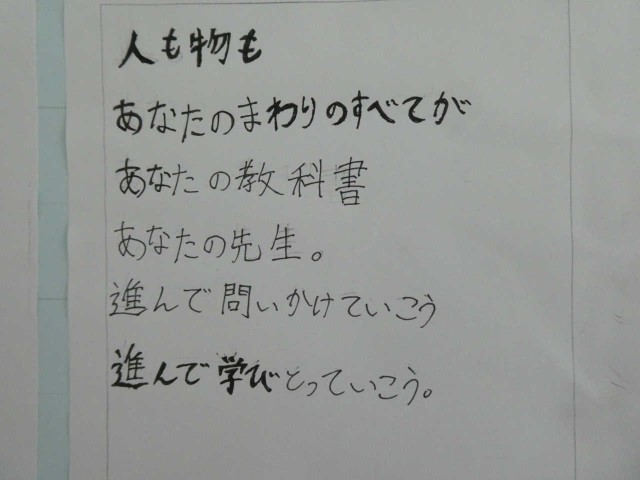 人も物も
あなたのまわりのすべてが
あなたの教科書
あなたの先生。
進んで問いかけていこう
進んで学びとっていこう。